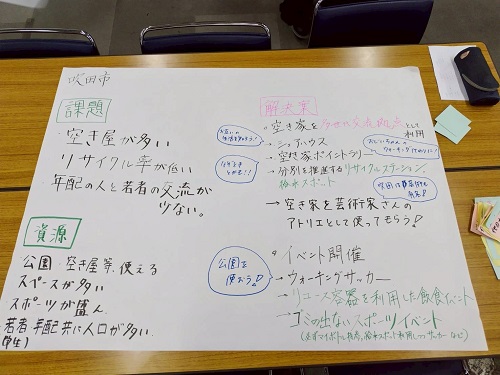 吹田市
課題
・空き屋が多い
・リサイクル率が低い
・年配の人と若者の交流が少ない。
資源
・公園・空き屋等、使えるスペースが多い
・スポーツが盛ん
・若者年配共に人口が多い
(学生)
解決案
・空き家を多世代交流拠点として利用
→シェアハウス
→空き家ポイントラリー
→分別を推進するリサイクルステーション、
給水スポット
→空き家を芸術家さんの
アトリエとして使ってもらう!
公園を使おう!
・イベント開催
→ウォーキングサッカー
→リユース容器を利用した飲食イベント
→ゴミの出ないスポーツイベント